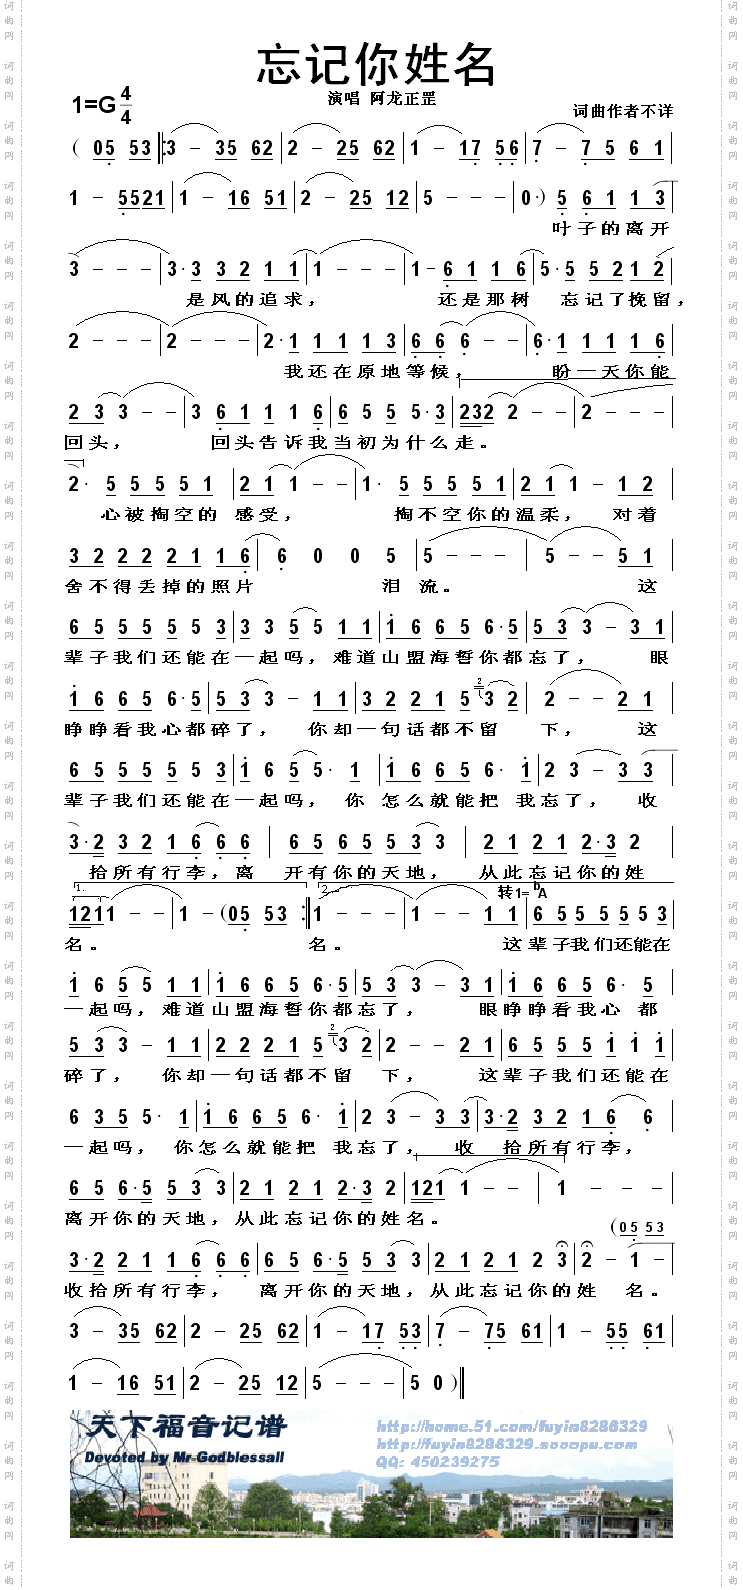 忘记你姓名
演唱 阿龙正罡
1=G 4/4
词曲作者不详
( 05 53 ‖: 3 - 35 62 | 2 - 25 62 | 1 - 17 56 | 7 - 7 5 6 1 |
1 - 5521 | 1 - 16 51 | 2 - 25 12 | 5 - - - | 0· ) 5 6 1 1 3
叶子的离开
3 - - - | 3· 3 3 2 1 1 | 1 - - - | 1 - 6 1 1 6 | 5· 5 5 2 1 2
是风的追求， 还是那树 忘记了挽留，
2 - - - | 2 - - - | 2· 1 1 1 1 3 | 6 6 6 - - | 6· 1 1 1 1 6
我还在原地等候， 盼一天你能
2 3 3 - - | 3 6 1 1 1 6 | 6 5 5 5· 3 | 232 2 - - | 2 - - - |
回头， 回头告诉我当初为什么走。
2· 5 5 5 5 1 | 2 1 1 - - | 1· 5 5 5 5 1 | 2 1 1 - 1 2 |
心被掏空的 感受， 掏不空你的温柔， 对着
3 2 2 2 1 1 6 | 6 0 0 5 | 5 - - - | 5 - - 5 1 |
舍不得丢掉的照片 泪 流。 这
6 5 5 5 5 5 3 | 3 3 5 5 1 1 | 1 6 6 5 6· 5 | 5 3 3 - 3 1 |
辈子我们还能在一起吗，难道山盟海誓你都忘了， 眼
1 6 6 5 6· 5 | 5 3 3 - 1 1 | 3 2 2 1 5 2 3 2 | 2 - - 2 1 |
睁睁看我心都碎了， 你却一句话都不留 下， 这
6 5 5 5 5 5 3 | 1 6 5 5· 1 | 1 6 6 5 6· 1 | 2 3 - 3 3
辈子我们还能在一起吗， 你 怎么就能把 我忘了， 收
3· 2 3 2 1 6 6 6 | 6 5 6 5 5 3 3 | 2 1 2 1 2· 3 2 |
拾所有行李，离 开有你的天地， 从此忘记你的姓
1. 2. 转1=bA
1211 - - | 1 - (05 53 :‖ 1 - - - | 1 - - 1 1 | 6 5 5 5 5 5 3 |
名。 名。 这辈子我们还能在
1 6 5 5 1 1 | 1 6 6 5 6· 5 | 5 3 3 - 3 1 | 1 6 6 5 6· 5
一起吗，难道山盟海誓你都忘了， 眼睁睁看我心 都
5 3 3 - 1 1 | 2 2 2 1 5 2 3 2 | 2 - - 2 1 | 6 5 5 5 1 1 1 |
碎了， 你却一句话都不留 下， 这辈子我们还能在
6 3 5 5· 1 | 1 6 6 5 6· 1 | 2 3 - 3 3 | 3· 2 3 2 1 6 6 |
一起吗， 你怎么就能把 我忘了， 收 拾所有行李，
6 5 6· 5 5 3 3 | 2 1 2 1 2· 3 2 | 121 1 - - | 1 - - - |
离开你的天地，从此忘记你的姓名。
(05 53
3· 2 2 1 1 6 6 | 6 5 6· 5 5 3 3 | 2 1 2 1 2 3 | 2 - 1 -
收拾所有行李， 离开你的天地，从此忘记你的姓 名。
3 - 35 62 | 2 - 25 62 | 1 - 17 53 | 7 - 75 61 | 1 - 55 61 |
1 - 16 51 | 2 - 25 12 | 5 - - - | 5 0 )‖
天下福音记谱
Devoted by Mr-Godblessall
http://home.51.com/fuyin8286329
http://fuyin8286329.sooopu.com
QQ: 450239275